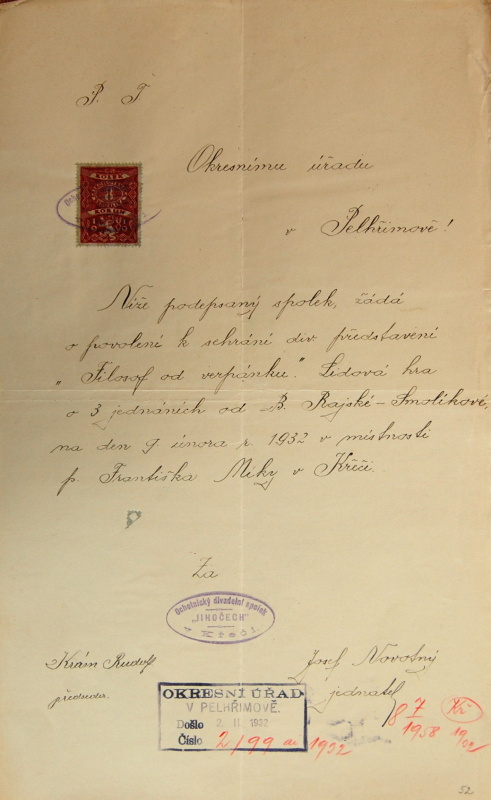 P. T.
Okresnímu úřadu
v Pelhřimově!
KOLEK
KORUN
Níže podepsaný spolek, žádá
o povolení k sehrání div. představení
„Filosof od verpánku." Lidová hra
o 3 jednáních od B. Rajské-Smolíkové,
na den 9 února r. 1932 v místnosti
p. Františka Míky v Křči.
Za
Ochotnický divadelní spolek
„JIHOČECH"
v Křeči.
Krám Rudolf
předseda.
Josef Novotný
jednatel
OKRESNÍ ÚŘAD
V PELHŘIMOVĚ.
Došlo 2. II. 1932
Číslo 2199 ai 1932
8 7
1958
19/32
52